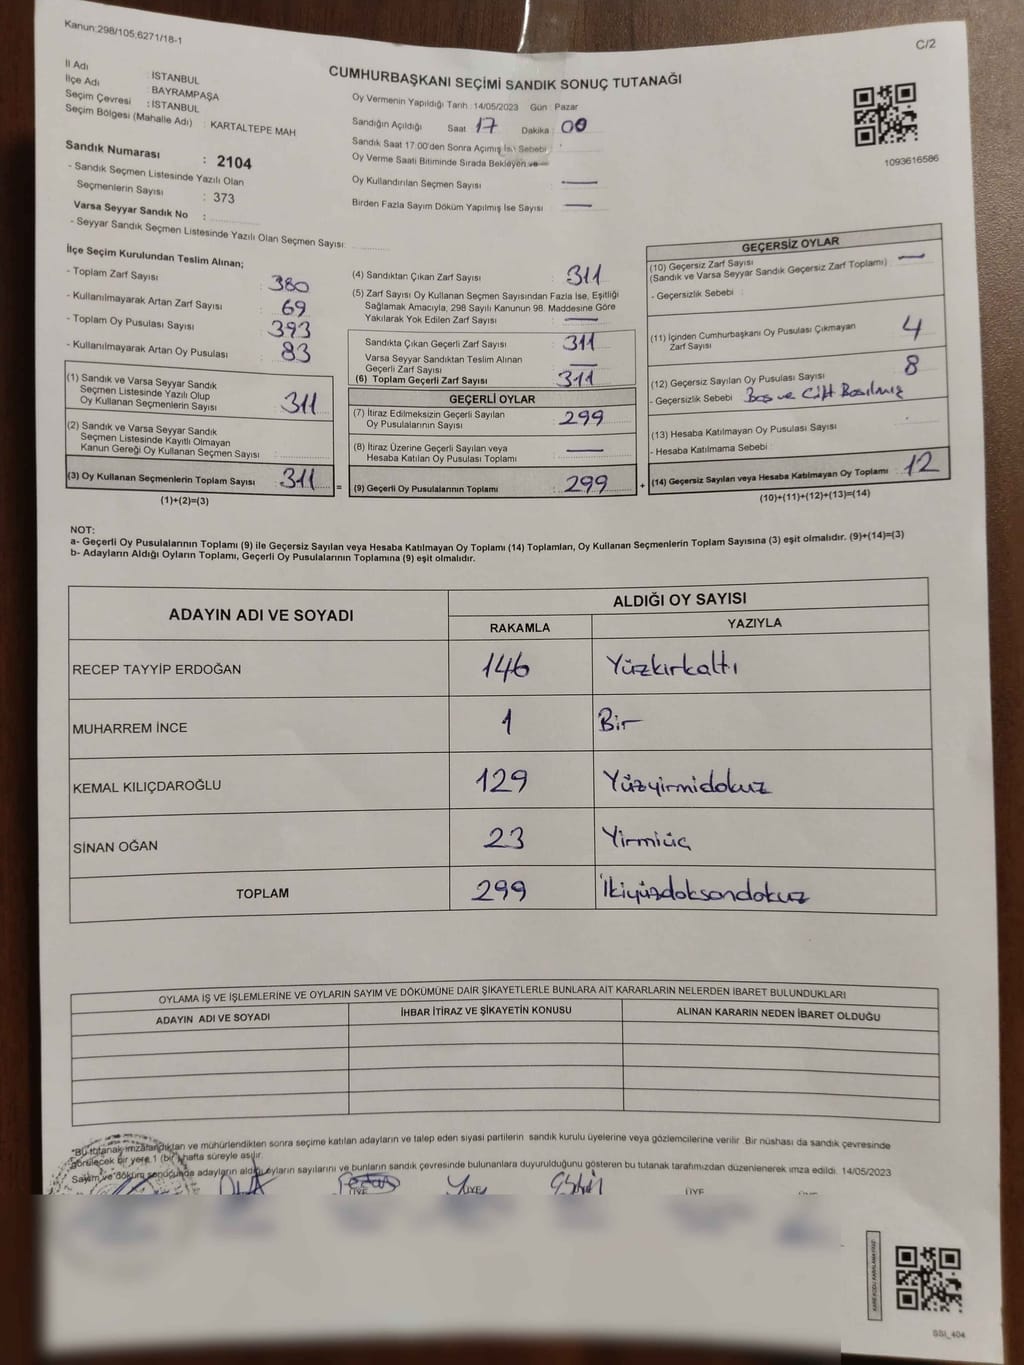 Kanun:298/105;6271/18-1
C/2
CUMHURBAŞKANI SEÇİMİ SANDIK SONUÇ TUTANAĞI
İl Adı : İSTANBUL
İlçe Adı : BAYRAMPAŞA
Seçim Çevresi : İSTANBUL
Seçim Bölgesi (Mahalle Adı) : KARTALTEPE MAH
Sandık Numarası : 2104
- Sandık Seçmen Listesinde Yazılı Olan
Seçmenlerin Sayısı : 373
Varsa Seyyar Sandık No :
- Seyyar Sandık Seçmen Listesinde Yazılı Olan Seçmen Sayısı:
Oy Vermenin Yapıldığı Tarih :14/05/2023 Gün : Pazar
Sandığın Açıldığı Saat : 17 Dakika : 00
Sandık Saat 17:00'den Sonra Açımış İse Sebebi :
Oy Verme Saati Bitiminde Sırada Bekleyen ve
Oy Kullandırılan Seçmen Sayısı : —
Birden Fazla Sayım Döküm Yapılmış İse Sayısı : —
1093616586
İlçe Seçim Kurulundan Teslim Alınan;
- Toplam Zarf Sayısı : 380
- Kullanılmayarak Artan Zarf Sayısı : 69
- Toplam Oy Pusulası Sayısı : 393
- Kullanılmayarak Artan Oy Pusulası : 83
(1) Sandık ve Varsa Seyyar Sandık
Seçmen Listesinde Yazılı Olup
Oy Kullanan Seçmenlerin Sayısı : 311
(2) Sandık ve Varsa Seyyar Sandık
Seçmen Listesinde Kayıtlı Olmayan
Kanun Gereği Oy Kullanan Seçmen Sayısı :
(3) Oy Kullanan Seçmenlerin Toplam Sayısı : 311
(1)+(2)=(3)
=
(4) Sandıktan Çıkan Zarf Sayısı : 311
(5) Zarf Sayısı Oy Kullanan Seçmen Sayısından Fazla İse, Eşitliği
Sağlamak Amacıyla, 298 Sayılı Kanunun 98. Maddesine Göre
Yakılarak Yok Edilen Zarf Sayısı : —
Sandıkta Çıkan Geçerli Zarf Sayısı : 311
Varsa Seyyar Sandıktan Teslim Alınan
Geçerli Zarf Sayısı : —
(6) Toplam Geçerli Zarf Sayısı : 311
GEÇERLİ OYLAR
(7) İtiraz Edilmeksizin Geçerli Sayılan
Oy Pusulalarının Sayısı : 299
(8) İtiraz Üzerine Geçerli Sayılan veya
Hesaba Katılan Oy Pusulası Toplamı : —
(9) Geçerli Oy Pusulalarının Toplamı : 299
+
GEÇERSİZ OYLAR
(10) Geçersiz Zarf Sayısı : —
(Sandık ve Varsa Seyyar Sandık Geçersiz Zarf Toplamı)
- Geçersizlik Sebebi :
(11) İçinden Cumhurbaşkanı Oy Pusulası Çıkmayan
Zarf Sayısı : 4
(12) Geçersiz Sayılan Oy Pusulası Sayısı : 8
- Geçersizlik Sebebi : Boş ve Çift Basılmış
(13) Hesaba Katılmayan Oy Pusulası Sayısı :
- Hesaba Katılmama Sebebi :
(14) Geçersiz Sayılan veya Hesaba Katılmayan Oy Toplamı : 12
(10)+(11)+(12)+(13)=(14)
NOT:
a- Geçerli Oy Pusulalarının Toplamı (9) ile Geçersiz Sayılan veya Hesaba Katılmayan Oy Toplamı (14) Toplamları, Oy Kullanan Seçmenlerin Toplam Sayısına (3) eşit olmalıdır. (9)+(14)=(3)
b- Adayların Aldığı Oyların Toplamı, Geçerli Oy Pusulalarının Toplamına (9) eşit olmalıdır.
ADAYIN ADI VE SOYADI ALDIĞI OY SAYISI
RAKAMLA YAZIYLA
RECEP TAYYİP ERDOĞAN 146 Yüzkırkaltı
MUHARREM İNCE 1 Bir
KEMAL KILIÇDAROĞLU 129 Yüzyirmidokuz
SİNAN OĞAN 23 Yirmiüç
TOPLAM 299 İkiyüzdoksandokuz
OYLAMA İŞ VE İŞLEMLERİNE VE OYLARIN SAYIM VE DÖKÜMÜNE DAİR ŞİKAYETLERLE BUNLARA AİT KARARLARIN NELERDEN İBARET BULUNDUKLARI
ADAYIN ADI VE SOYADI İHBAR İTİRAZ VE ŞİKAYETİN KONUSU ALINAN KARARIN NEDEN İBARET OLDUĞU
*Bu tutanak imzalandıktan ve mühürlendikten sonra seçime katılan adayların ve talep eden siyasi partilerin sandık kurulu üyelerine veya gözlemcilerine verilir. Bir nüshası da sandık çevresinde
görülecek bir yere 1 (bir) hafta süreyle asılır.
Sayım ve döküm sonucunda adayların aldığı oyların sayılarını ve bunların sandık çevresinde bulunanlara duyurulduğunu gösteren bu tutanak tarafımızdan düzenlenerek imza edildi. 14/05/2023
ÜYE ÜYE ÜYE
SSI_404